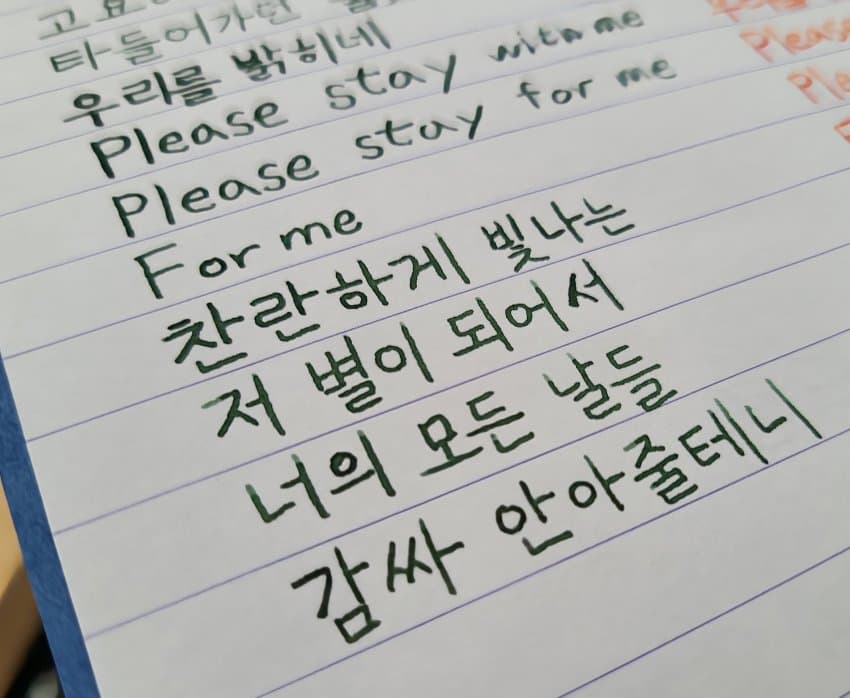 고요
타들어가던
우리를 밝히네
Please stay with me
Please
Please stay for me
For me
찬란하게 빛나는
저 별이 되어서
너의 모든 날들
감싸 안아줄테니